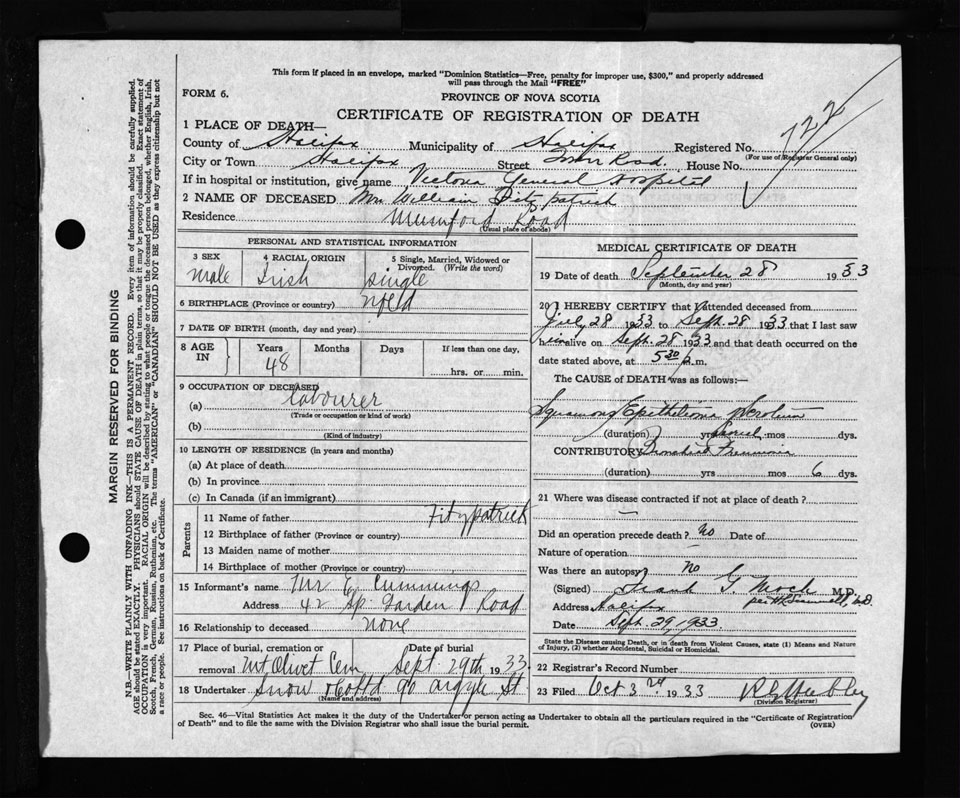 This form if placed in an envelope, marked "Dominion Statistics—Free, penalty for improper use, $300," and properly addressed
will pass through the Mail "FREE"
FORM 6.
PROVINCE OF NOVA SCOTIA
CERTIFICATE OF REGISTRATION OF DEATH
722
1 PLACE OF DEATH—
County of Halifax Municipality of Halifax Registered No.
(For use of Registrar General only)
City or Town Halifax Street Road. House No.
If in hospital or institution, give name Victoria General Hospital
2 NAME OF DECEASED Mr. William Fitzpatrick
Residence Mumford Road
(Usual place of abode)
PERSONAL AND STATISTICAL INFORMATION
3 SEX 4 RACIAL ORIGIN 5 Single, Married, Widowed or Divorced. (Write the word)
male Irish Single
6 BIRTHPLACE (Province or country) Nfld
7 DATE OF BIRTH (month, day and year)
8 AGE IN Years Months Days If less than one day,
48 hrs. or min.
9 OCCUPATION OF DECEASED
(a) Labourer
(Trade or occupation or kind of work)
(b)
(Kind of industry)
10 LENGTH OF RESIDENCE (in years and months)
(a) At place of death
(b) In province
(c) In Canada (if an immigrant)
Parents
11 Name of father Fitzpatrick
12 Birthplace of father (Province or country)
13 Maiden name of mother
14 Birthplace of mother (Province or country)
15 Informant's name Mr E. Cummings
Address 42 Sp. Garden Road
16 Relationship to deceased none
17 Place of burial, cremation or removal Mt Olivet Cem Date of burial Sept. 29th 1933
18 Undertaker Snow & Co Ltd 90 Argyle St
(Name and address)
MEDICAL CERTIFICATE OF DEATH
19 Date of death September 28 1933
(Month, day and year)
20 I HEREBY CERTIFY that I attended deceased from
July 28 1933 to Sept. 28 1933 that I last saw
him alive on Sept. 28 1933 and that death occurred on the
date stated above, at 5 30 p.m.
The CAUSE OF DEATH was as follows:—
Squamous Epithelioma Scrotum
(duration) yrs. mos dys.
CONTRIBUTORY Bronchial Pneumonia
(duration) yrs mos 6 dys.
21 Where was disease contracted if not at place of death?
—
Did an operation precede death? No Date of
Nature of operation
Was there an autopsy? No
(Signed) Frank G. Mack M.D.
Address Halifax
Date Sept. 29, 1933.
State the Disease causing Death, or in death from Violent Causes, state (1) Means and Nature
of Injury, (2) whether Accidental, Suicidal or Homicidal.
22 Registrar's Record Number
23 Filed Oct 3rd 1933
(Division Registrar)
Sec. 46—Vital Statistics Act makes it the duty of the Undertaker or person acting as Undertaker to obtain all the particulars required in the "Certificate of Registration
of Death" and to file the same with the Division Registrar who shall issue the burial permit.
(OVER)
MARGIN RESERVED FOR BINDING
N.B.—WRITE PLAINLY WITH UNFADING INK—THIS IS A PERMANENT RECORD. Every item of information should be carefully supplied.
AGE should be stated EXACTLY. PHYSICIANS should STATE CAUSE OF DEATH in plain terms, so that it may be properly classified. Exact statement of
OCCUPATION is very important. RACIAL ORIGIN will be described by stating to what people or tongue the deceased person belonged, whether English, Irish,
Scotch, French, German, Russian, Ruthenian, etc. The terms "AMERICAN" or "CANADIAN" SHOULD NOT BE USED as they express citizenship but not
a race or people. See instructions on back of Certificate.